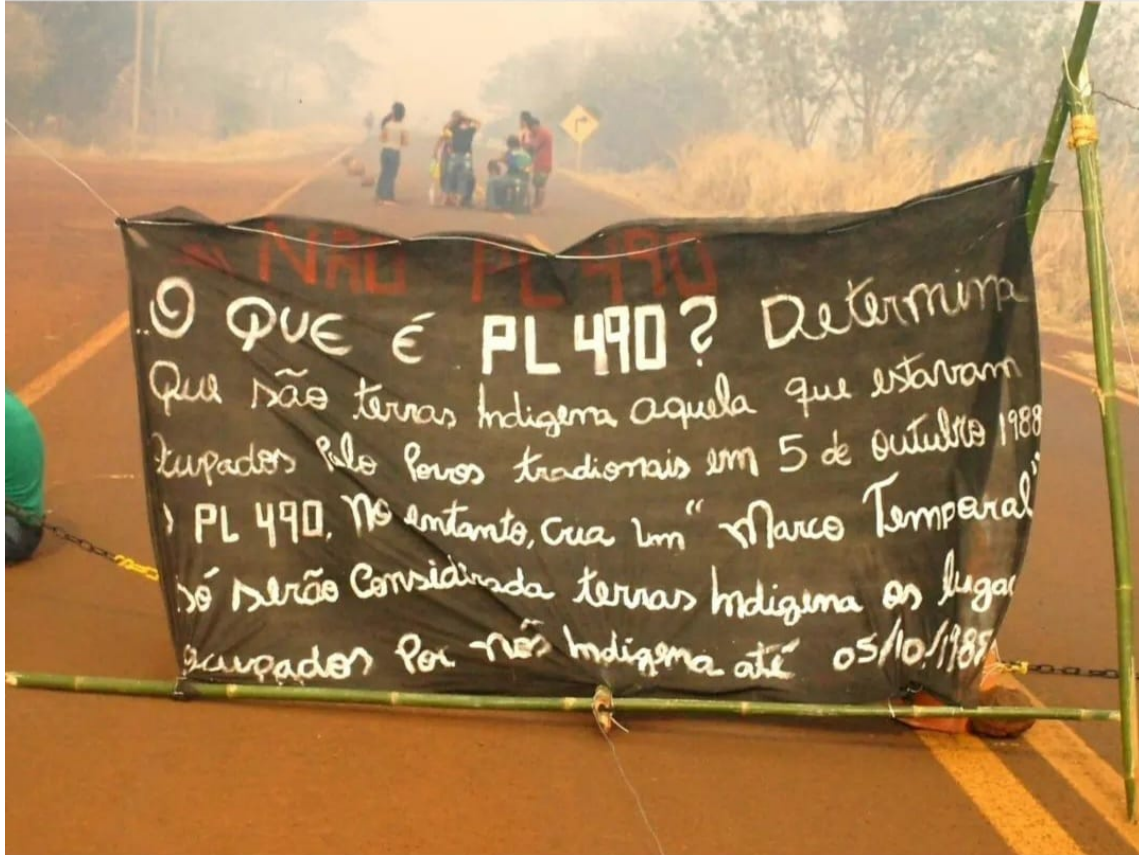 NÃO PL 490
O QUE É PL 490? Determina
Que são terras Indigena aquela que estavam
Ocupados Pelo Povos tradionais em 5 de outubro 1988
PL 490, No entanto, cria um "Marco Temporal"
só serão Considirada terras Indigena os luga
ocupados Por nós Indigena até 05/10/1988